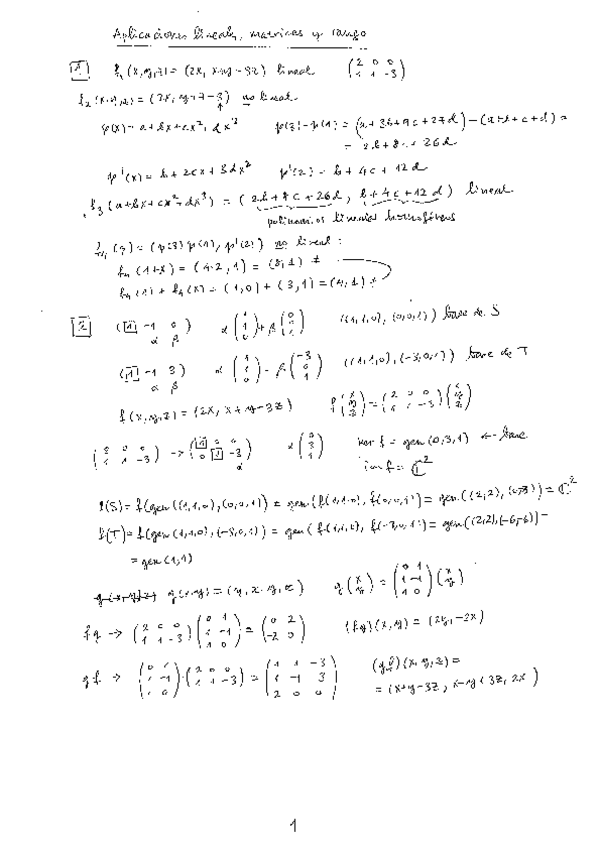 Aplicaciones lineales, matrices y rango
1 f₁(x,y,z) = (2x, x+y-3z) lineal (2 0 0 / 1 1 -3)
f₂(x,y,z) = (2x, y+z-3) no lineal
p(x) = a+bx+cx²+dx³ p(3)-p(1) = (a+3b+9c+27d)-(a+b+c+d) =
= 2b+8c+26d
p'(x) = b+2cx+3dx² p'(2) = b+4c+12d
f₃(a+bx+cx²+dx³) = (2b+8c+26d, b+4c+12d) lineal
polinomios lineales homogéneos
f₄(p) = (p(3)p(1), p'(2)) no lineal:
f₄(1+x) = (4·2, 1) = (8,1) ≠
f₄(1)+f₄(x) = (1,0)+(3,1) = (4,1)
2 (1 -1 0) α β α(1 / 1 / 0)+β(0 / 0 / 1) ((1,1,0), (0,0,1)) base de S
(1 -1 3) α β α(1 / 1 / 0)+β(-3 / 0 / 1) ((1,1,0), (-3,0,1)) base de T
f(x,y,z) = (2x, x+y-3z) f(x / y / z) = (2 0 0 / 1 1 -3)(x / y / z)
(2 0 0 / 1 1 -3) → (1 0 0 / 0 1 -3) α α(0 / 3 / 1) ker f = gen(0,3,1) ← base
im f = ℂ²
f(S) = f(gen((1,1,0),(0,0,1)) = gen(f(1,1,0), f(0,0,1)) = gen((2,2),(0,-3)) = ℂ²
f(T) = f(gen(1,1,0),(-3,0,1)) = gen(f(1,1,0), f(-3,0,1)) = gen((2,2),(-6,-6)) =
= gen(1,1)
g(x,y) = (y, x-y, x) g(x / y) = (0 1 / 1 -1 / 1 0)(x / y)
fg → (2 0 0 / 1 1 -3)(0 1 / 1 -1 / 1 0) = (0 2 / -2 0) (fg)(x,y) = (2y, -2x)
gf → (0 1 / 1 -1 / 1 0)·(2 0 0 / 1 1 -3) = (1 1 -3 / 1 -1 3 / 2 0 0) (gf)(x,y,z) =
= (x+y-3z, x-y+3z, 2x)
1